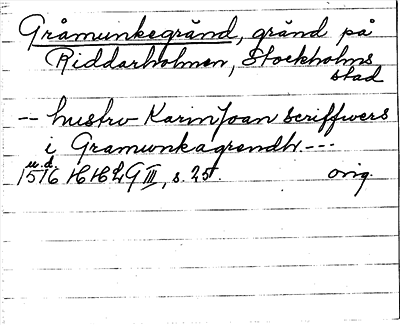 Gråmunkegränd, gränd på
Riddarholmen, Stockholms
stad
-- hustrv Karin Joan scriffwers
i Gramunkagrendh ---
u.d.
1516 HHLG III, s. 25. orig.